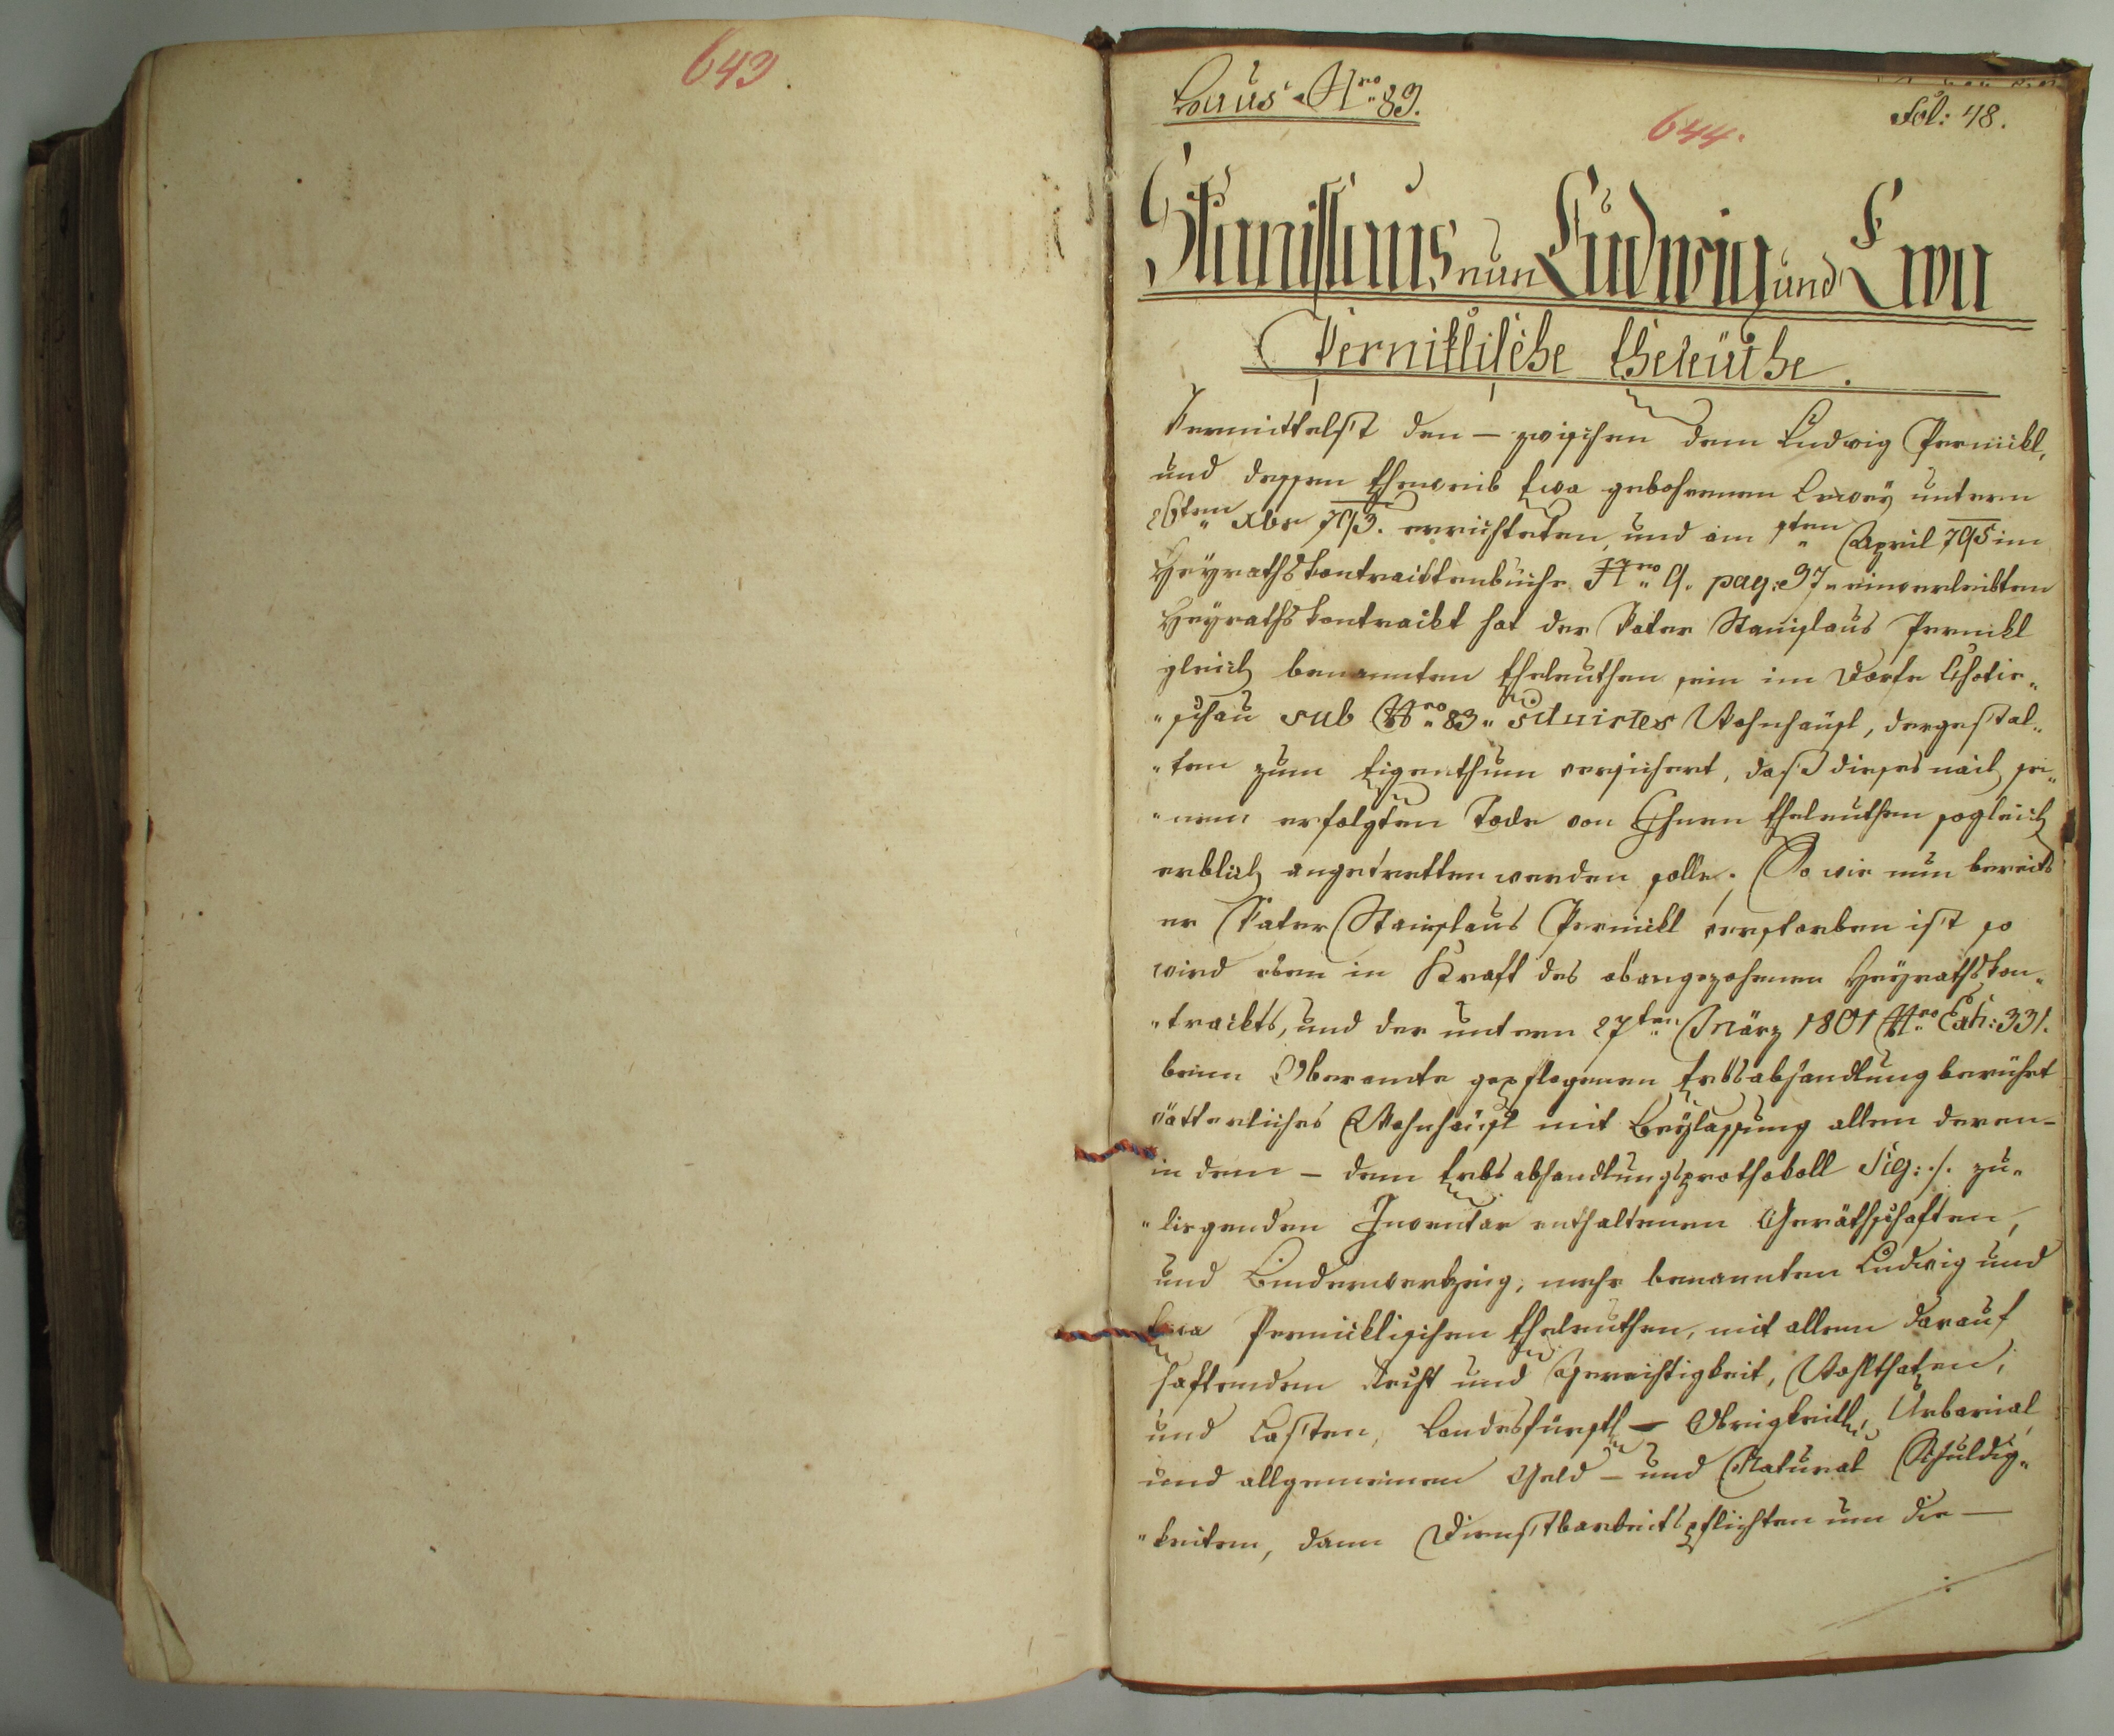 643.
Haus Nro 83.
644.
Fol: 48.
Stanislaus, nun Ludwig und Ewa
Perniklische Eheleüthe.
Vermittelst den — zwischen dem Ludwig Pernikl,
und dessen Eheweib Ewa gebohrenen untern
26ten Xbr 793. errichteten, und am 1ten April 795 im
Heyrathskontracktenbuche Nro 9. pag: 37 einverleibten
Heyrathskontrackt hat der Vater Stanislaus Pernikl
gleich benannten Eheleuthen sein im Dorfe Chotie„
„schau sub Nro 83 situirtes Wohnhäusl, dergestal„
„ten zum Eigenthum versichert, daß dieses nach sei„
„nem erfolgten Tode von Ihnen Eheleuthen sogleich
erblich angetretten werden solle. So wie nun bereits
er Vater Stanislaus Pernikl verstorben ist so
wird eben in Kraft des obangezohenen Heyrathskon„
„trackts, und der untern 27ten März 1801 Nro Exh: 331.
beim Oberamte gepflogenen Erbsabhandlung berührt
vätterliches Wohnhäusl mit Beylassung allen deren-
in dem — dem Erbsabhandlungsprothokoll Sig: ./. zu„
„liegenden Inventar enthaltenen Geräthschaften,
und Binderwerkzeig, mehr benannten Ludwig und
Ewa Perniklischen Eheleuthen, mit allem darauf
haftenden Recht und Gerechtigkeit, Wohlthaten,
und Lasten, Landesfürstl — Obrigkeitl, Urbarial,
und allgemeinen Geld — und Natural Schuldig„
„keiten, dann Dienstbarkeitspflichten um die —